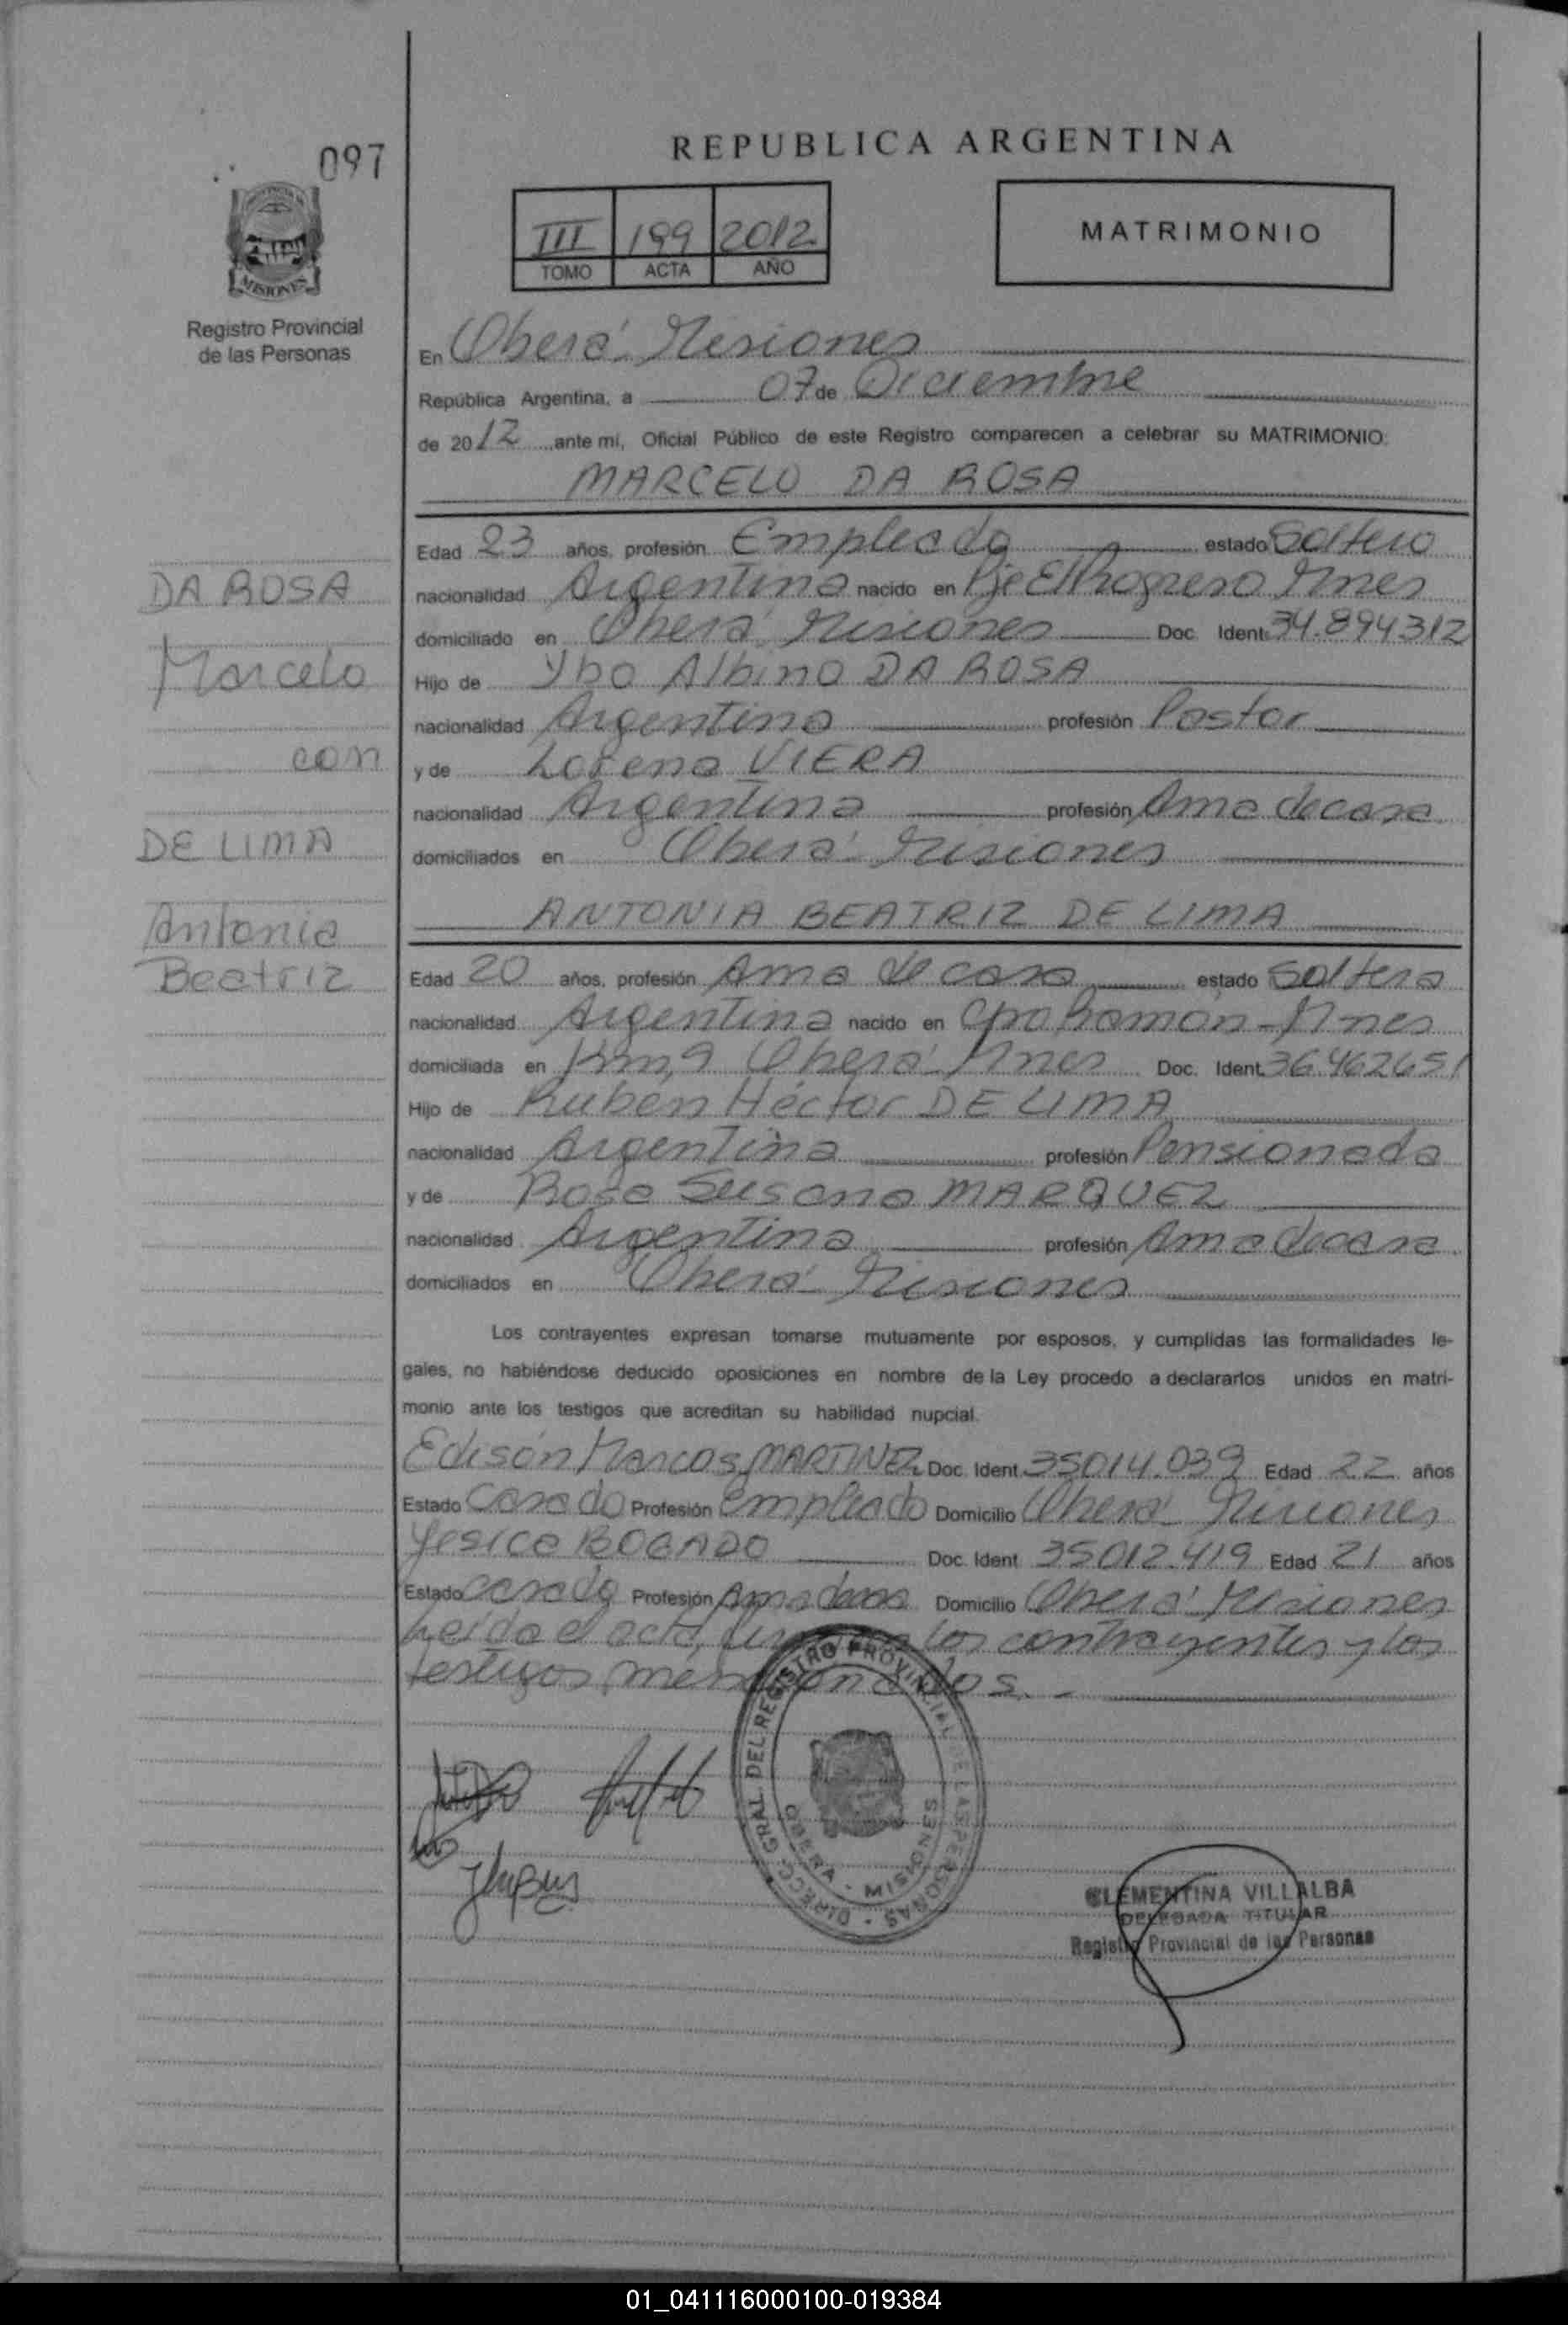 097
REPUBLICA ARGENTINA
III 199 2012
TOMO ACTA AÑO
MATRIMONIO
MISIONES
Registro Provincial
de las Personas
En Oberá Misiones
República Argentina, a 07 de Diciembre
de 2012 ante mí, Oficial Público de este Registro comparecen a celebrar su MATRIMONIO:
MARCELO DA ROSA
Edad 23 años, profesión Empleado estado Soltero
nacionalidad Argentina nacido en Pje El Progreso Mnes
domiciliado en Oberá Misiones Doc. Ident. 34.894312
Hijo de Ybo Albino DA ROSA
nacionalidad Argentina profesión Pastor
y de Lorena VIERA
nacionalidad Argentina profesión Ama de casa
domiciliados en Oberá Misiones
DA ROSA
Marcelo
con
DE LIMA
Antonia
Beatriz
ANTONIA BEATRIZ DE LIMA
Edad 20 años, profesión Ama de casa estado Soltera
nacionalidad Argentina nacido en Cpo Ramón - Mnes
domiciliada en Km, 9 Oberá Mnes Doc. Ident. 36462651
Hijo de Rubén Héctor DE LIMA
nacionalidad Argentina profesión Pensionado
y de Rosa Susana MARQUEZ
nacionalidad Argentina profesión Ama de casa
domiciliados en Oberá Misiones
Los contrayentes expresan tomarse mutuamente por esposos, y cumplidas las formalidades le-
gales, no habiéndose deducido oposiciones en nombre de la Ley procedo a declararlos unidos en matri-
monio ante los testigos que acreditan su habilidad nupcial.
Edisón Marcos MARTINEZ Doc. Ident. 35014.039 Edad 22 años
Estado Casado Profesión empleado Domicilio Oberá Misiones
Yesica BOGADO Doc. Ident. 35012.419 Edad 21 años
Estado casada Profesión Ama de casa Domicilio Oberá Misiones
Leída el acta, los contrayentes y los
testigos mencionados. -
DIRECC. GRAL. DEL REGISTRO PROVINCIAL DE LAS PERSONAS
OBERA - MISIONES
CLEMENTINA VILLALBA
DELEGADA TITULAR
Registro Provincial de las Personas
01_041116000100-019384